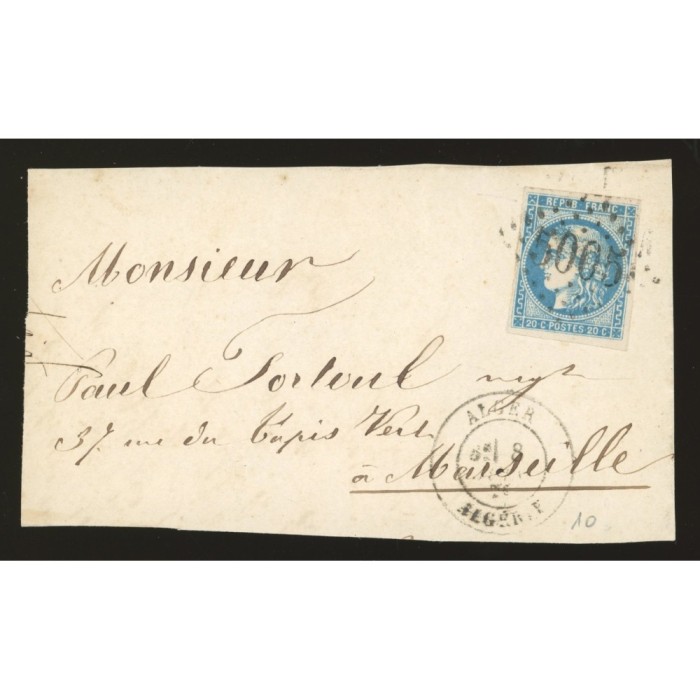 REPUB. FRANC.
5005
20 C POSTES 20 C
Monsieur
Paul Fortoul negt
37 rue du Tapis Vert
à Marseille
ALGER
8
ALGERIE
10